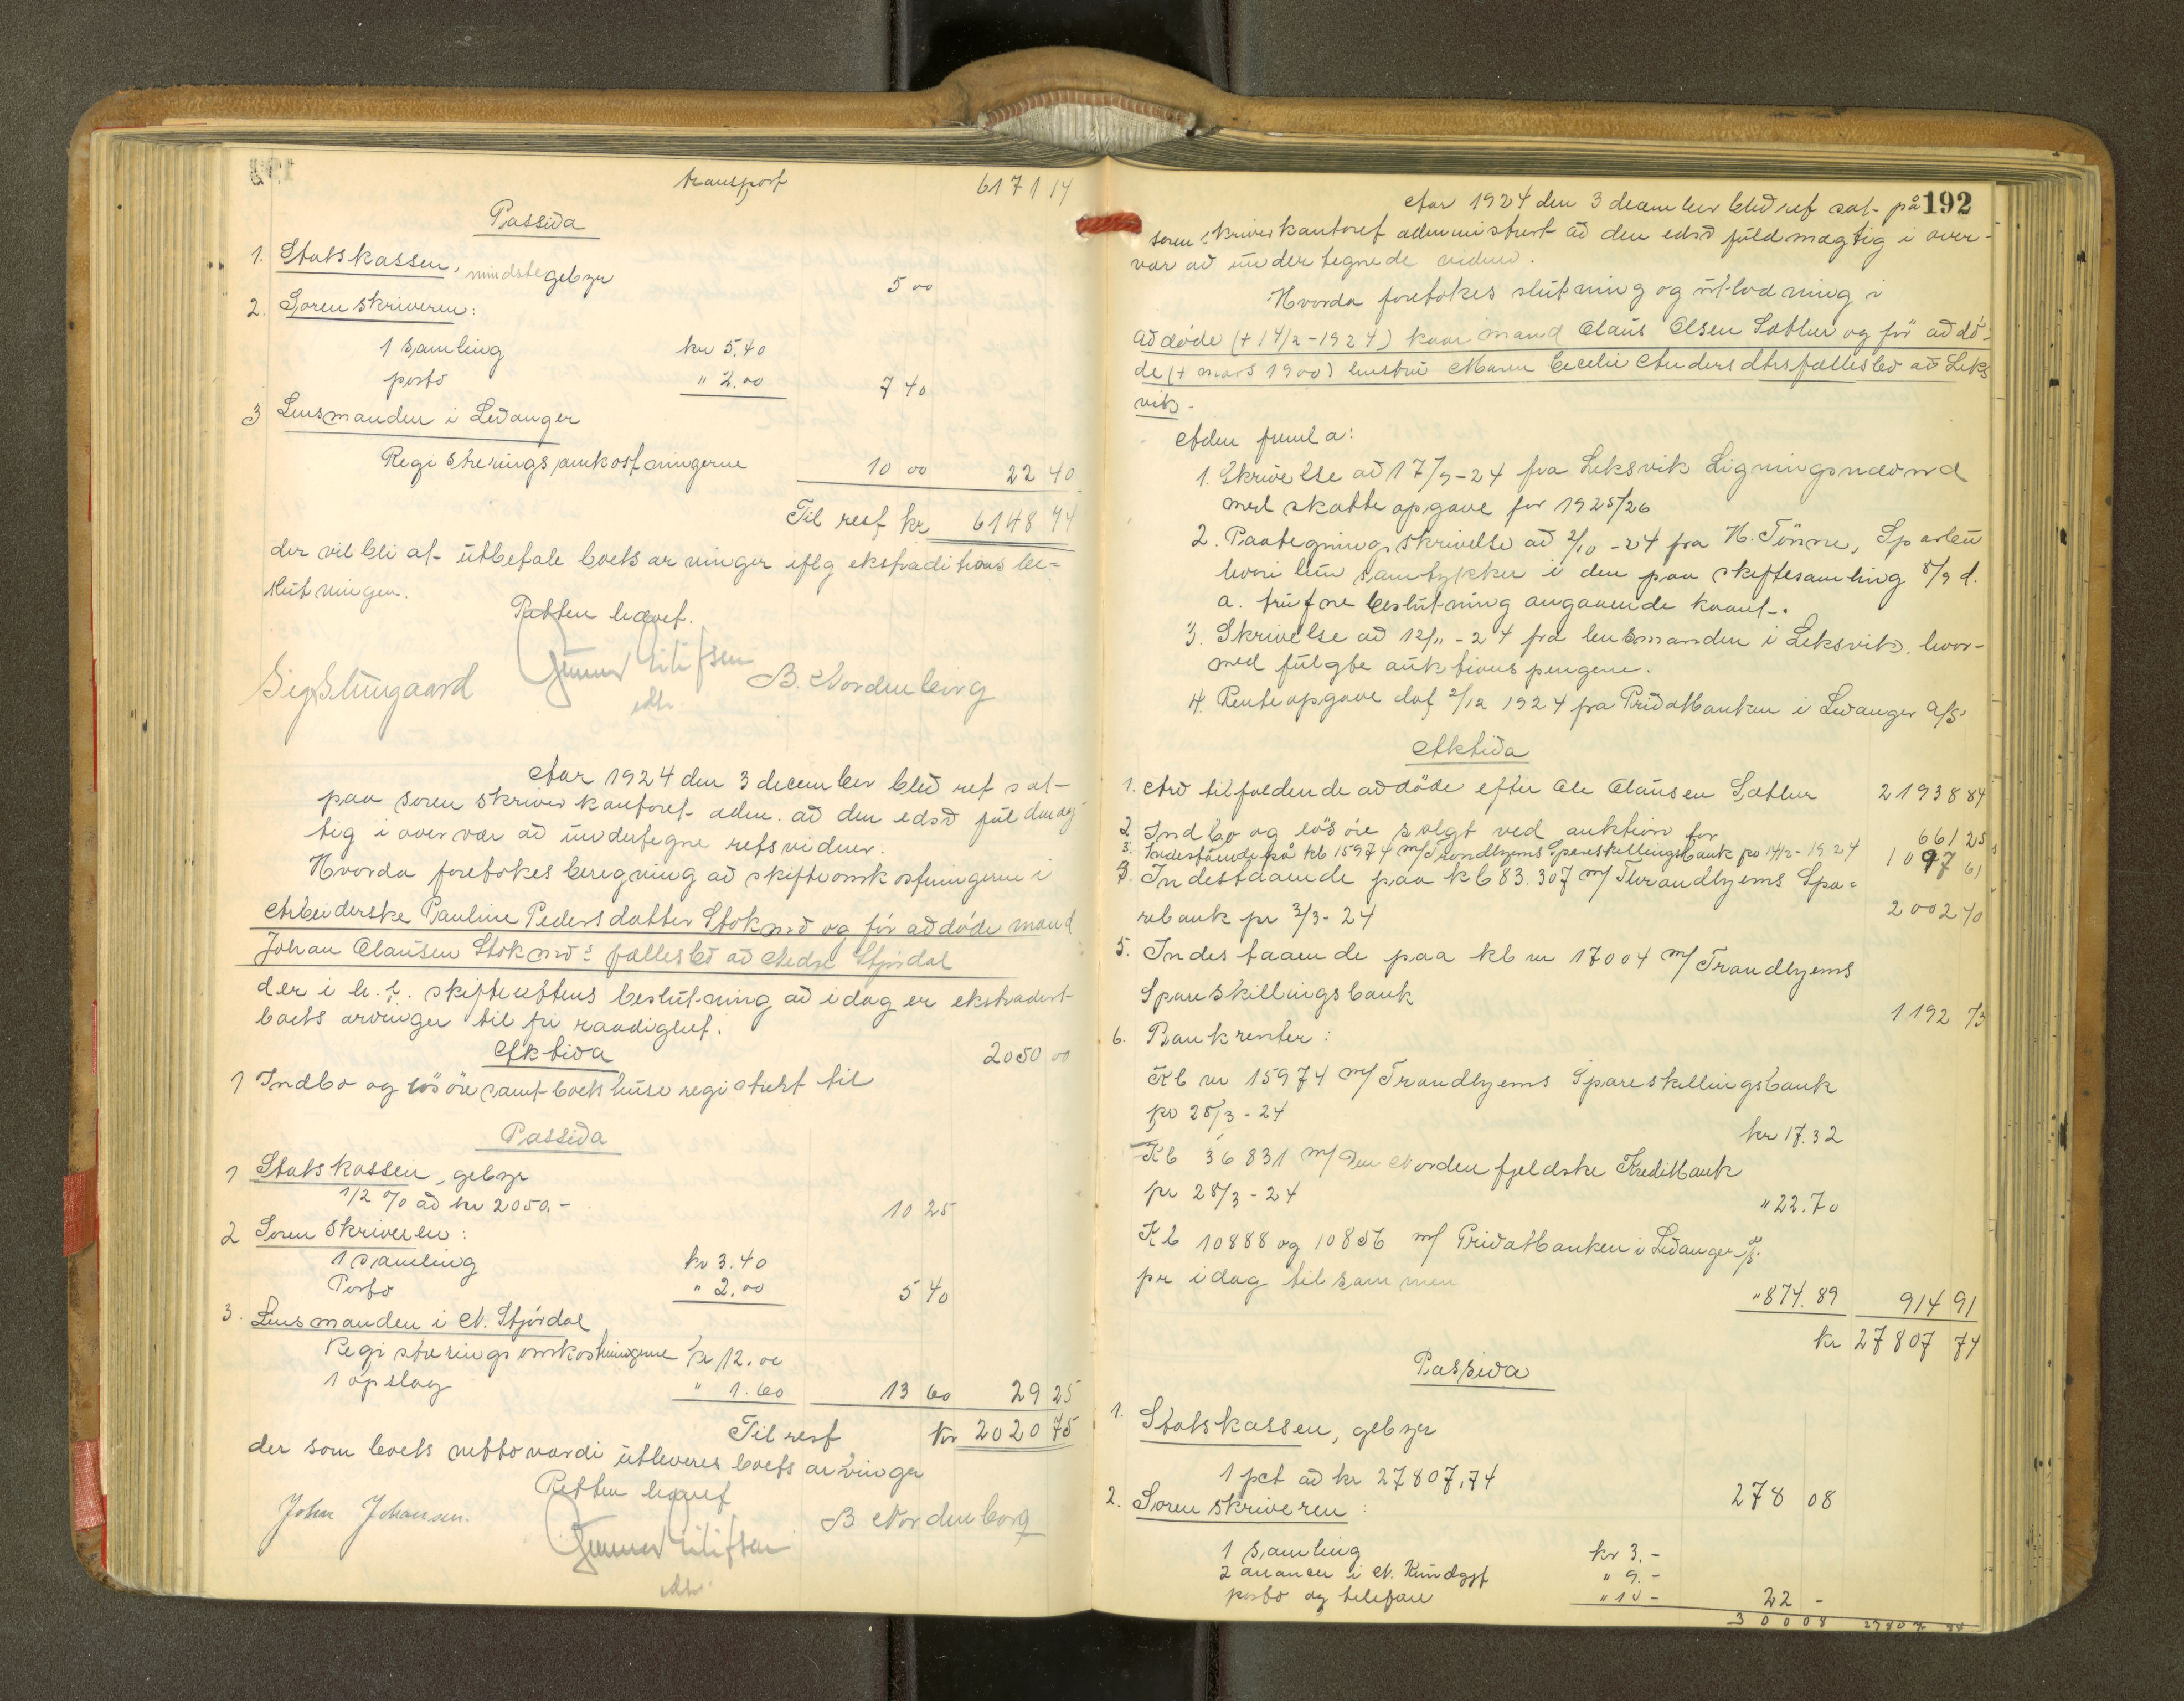 transport 6171 14
Passiva
1. Statskassen, mindstegebyr 5 00
2. Sorenskriveren:
1 samling kr 5.40
porto " 2.00 7 40
3 Lensmanden i Levanger
Registreringsomkostningerne 10 00 22 40
Til rest kr 6148 74
der vil bli at utbetale boets arvinger iflg ekstraditionsbe=
slutningen.
Retten hævet.
B. Nordenborg
Aar 1924 den 3 december blev ret sat
paa sorenskriverkontoret adm. av den edsv fuldmæg
tig i overvær av undertegnede retsvidner.
Hvorda foretokes beregning av skifteomkostningerne i
Arbeiderske Pauline Pedersdatter Stokmo og før avdøde mand
Johan Clausen Stokmo's fællesbo av Nedre Stjørdal
der i h. t. skifterettens beslutning av idag er ekstradert
boets arvinger til fri raadighet.
Aktiva
1 Indbo og løsøre samt boets huse registrert til 2050 00
Passiva
1 Statskassen, gebyr
1/2 % av kr 2050.- 10 25
2 Sorenskriveren:
1 samling kr 3.40
Porto " 2.00 5 40
3. Lensmanden i N. Stjørdal
Registreringsomkostningerne kr 12.00
1 opslag " 1.60 13 60 29 25
Til rest kr 2020 75
der som boets nettoværdi utleveres boets arvinger
Retten hævet
John Johansen. B Nordenborg
192
Aar 1924 den 3 december blev ret sat på
sorenskriverkontoret administrert av den edsv fuldmægtig i over-
vær av undertegnede vidner.
Hvorda foretokes slutning og utlodning i
avdøde (+ 14/2-1924) kaarmand Claus Olsen Sætther og før avdø-
de (+ mars 1900) hustru Maren Cecelie Andersdtrs fællesbo av Leks
vik.
Aden fremla:
1. Skrivelse av 17/9-24 fra Leksvik Ligningsnævnd
med skatteopgave for 1925/26
2. Paategningsskrivelse av 2/10-24 fra H. Tønne, Sparbu
hvori hun samtykker i den paa skiftesamling 5/9 d.
a. trufne beslutning angaaende kaaret.
3. Skrivelse av 12/11-24 fra lensmanden i Leksvik, hvor-
med fulgte auktionspengene.
4. Renteopgave dat 2/12 1924 fra Privatbanken i Levanger A/S
Aktiva
1. Arv tilfaldende avdøde efter Ole Clausen Sætther 21938 84
2 Indbo og løsøre solgt ved auktion for 661 25
3. Indestående på kb 15974 m/ Trondhjems Spareskillingsbank pr 14/2-1924 1097 61
Indestaaende paa kb 83.307 m/ Throndhjems Spa=
rebank pr 3/3-24 2002 40
5. Indestaaende paa kb nr 17004 m/ Trondhjems
Spareskillingsbank 1192 73
6. Bankrenter:
Kb nr 15974 m/ Trondhjems Spareskillingsbank
pr 28/3-24 kr 17.32
Kb 36831 m/ Den Nordenfjeldske Kreditbank
pr 28/3-24 " 22.70
Kb 10888 og 10856 m/ Privatbanken i Levanger A/S.
pr idag tilsammen " 874.89 914 91
kr 27807 74
Passiva
1. Statskassen, gebyr
1 pct av kr 27807,74 278 08
2. Sorenskriveren:
1 samling kr 3.-
2 anoncer i N. Kundgjf " 9.-
porto og telefon " 10- 22 -
300 08 27807 74